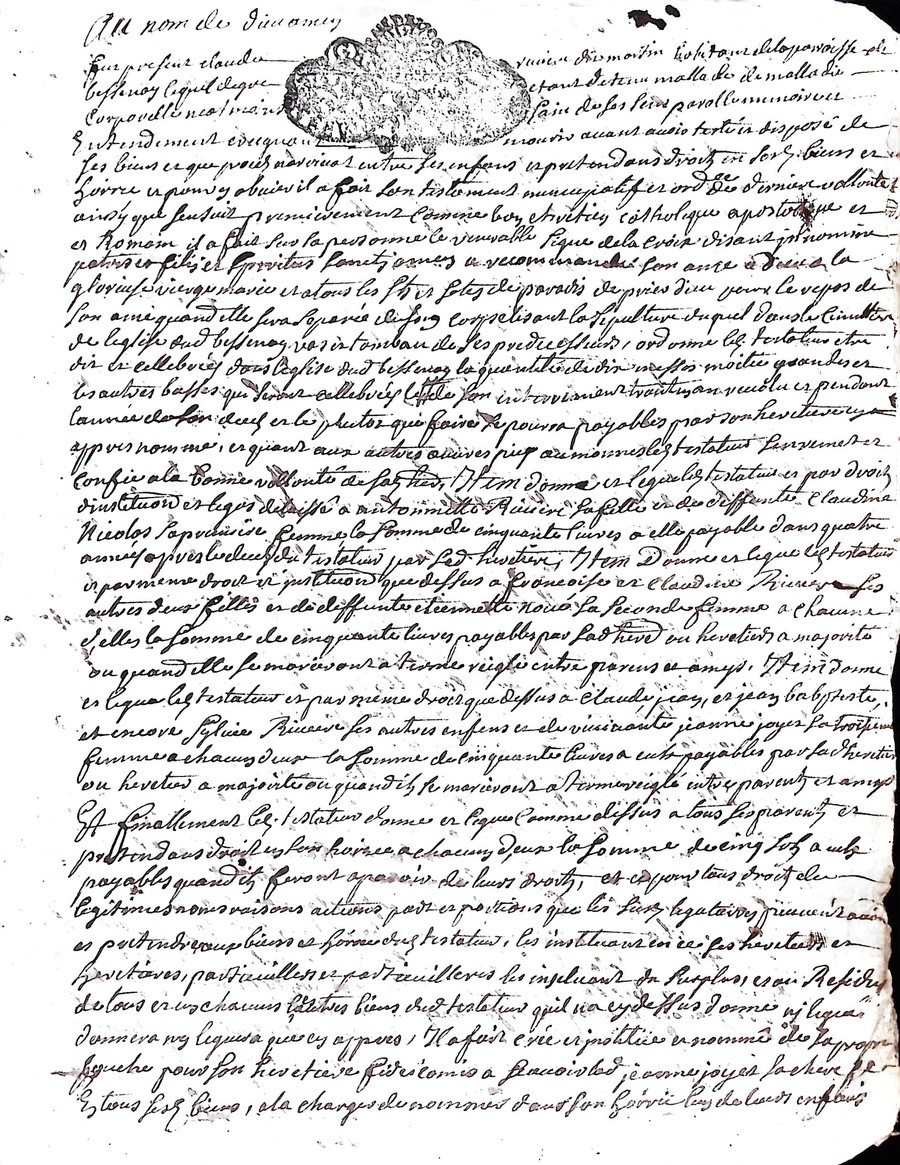 Au nom de dieu amen
fut present claude riviere dit martin habitant de la paroisse de
bessenay lequel de gre estant detenu mallade de malladie
corporelle neatmoins sain de ses sens parolle memoire et
Entendement craignant mourir avant avoir testé et disposé de
ses biens et que procès narrivat entre ses enfans et pretendans droitz en sesd. biens et
hoirie et pour y obvier il a fait son testament nuncupatif et ord.re de dernière vollonté
ainsy que sensuit premierement comme bon chretien catholique apostolique et
et Romain il a fait sur sa personne le venerable signe de la croix disant in nomine
patris et filij et spiritus sancti amen a recommandé son ame a dieu a la
glorieuse vierge marie et a tous les sts et stes de paradis de prier dieu pour le repos de
son ame quand elle sera separée de son corps elisant la sepulture duquel dans le cimettiere
de leglise dud bessenay vas et tombeau de ses predecesseurs, ordonne led. testateur etre
dit et cellebrées dans leglise dud bessenay la quantité de dix messes moitié grandes et
les autres basses qui seront cellebrées son enterrement traittan revolu et pendant
lannee de son deces et le plustot que faire se pourra payables par son heretiere cy
appres nommé, et quant aux autres œuvres pies aumones led. testateur sen remet et
confie a la bonne vollonté de sad. her., Item donne et legue led. testateur et par droit
dinstitution et leges delaissé a antoinette Riviere sa fille et de deffunte Claudine
Nicolas sa premiere femme la somme de cinquante livres a elle payable dans quatre
années apres le deces du testateur par sed. heretiere, Item Donne et legue led. testateur
et par meme droit et institution que dessus a francoise et claudine Riviere ses
autres deux filles et de deffunte etiennette noué sa seconde femme a chacune
d'elles la somme de cinquante livres payables par sad. hered. ou heretiers a majorité
ou quand elle se marieront a terme reiglé entre parens et amys. Item donne
et legue led. testateur et par meme droit que dessus a claude, jean, et jean baptiste,
et encore Riviere ses autres enfens et de vivante jeanne joyet sa troisieme
femme a chacun deux la somme de cinquante livres a eux payables par sad. heretiere
ou heretier a majorité ou quand ilz se marieront a terme reiglé entre parents et amys
Et finallement led. testateur donne et legue comme dessus a tous ses parents et
pretendans droit en son hoirie a chacun d'eux la somme de cinq solz a eux
payables quand ilz feront aparoir de leurs droitz, et ce pour tous droitz de
legitimes noms raisons actions part et portions que les susd. legataires peuvent avoir
et pretendre aux biens et hoirie dud. testateur, les instituant en ce ses heretiers et
heretieres, particulliers et particullieres les du surplus, et au Residu
de tous et un chacuns ses autres biens dud. testateur quil na cy dessus donné ny legué
donnera ny leguera que cy appres, Il a fait créé et institué et nommé de sa propre
bouche pour son heretiere fideicomis a scavoir lad. jeanne joyet sa chere fe
En tous sesd. biens, a la charge de nommer dans son hoirie lun de leurs enfans